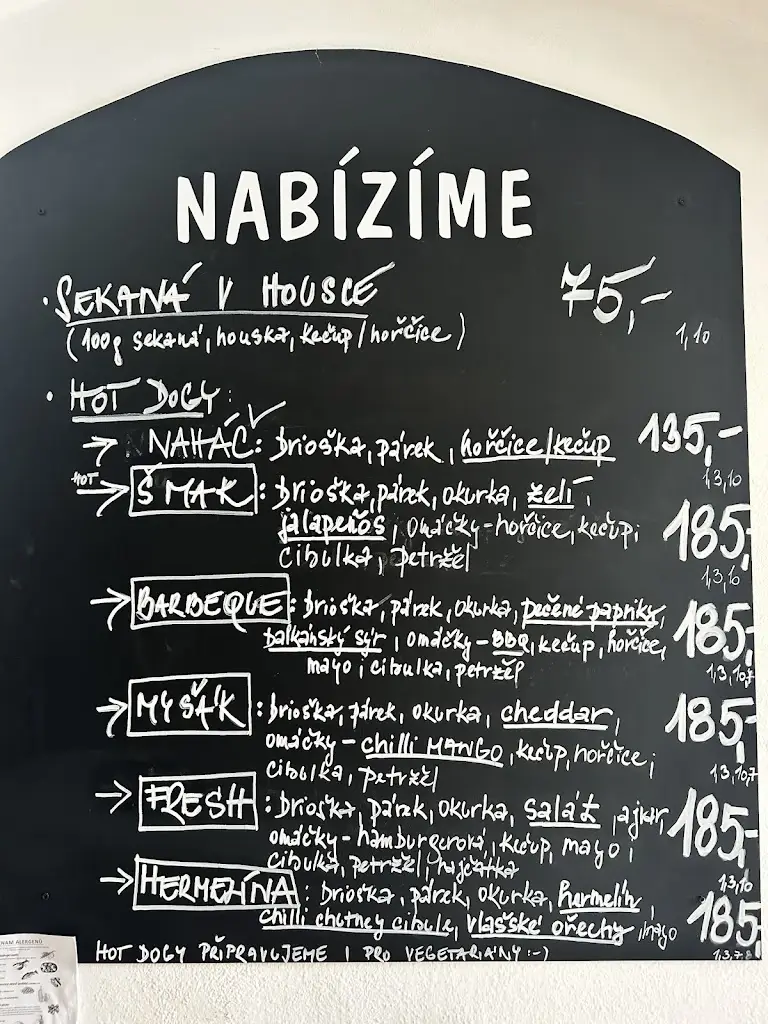 NABÍZÍME
· SEKANÁ V HOUSCE 75,-
(100g sekaná, houska, kečup/hořčice) 1,10
· HOT DOGY:
→ NAHÁČ: brioška, párek, hořčice/kečup 135,-
1,3,10
HOT → ŠMAK: brioška, párek, okurka, zelí, 185,-
jalapeños, omáčky-hořčice, kečup;
cibulka, petržel 1,3,10
→ BARBEQUE: brioška, párek, okurka, pečené papriky, 185,-
balkánský sýr, omáčky-BBQ, kečup, hořčice,
mayo; cibulka, petržel 1,3,10,7
→ MYŠÁK: brioška, párek, okurka, cheddar, 185,-
omáčky-chilli MANGO, kečup, hořčice;
cibulka, petržel 1,3,10,7
→ FRESH: brioška, párek, okurka, salát, ajvar, 185,-
omáčky-hamburgerová, kečup, mayo;
cibulka, petržel, rajčátka 1,3,10
→ HERMELÍNA: brioška, párek, okurka, hermelín, 185,
chilli chutney cibule, vlašské ořechy, mayo
HOT DOGY PŘIPRAVUJEME I PRO VEGETARIÁNY :-) 1,3,7,8